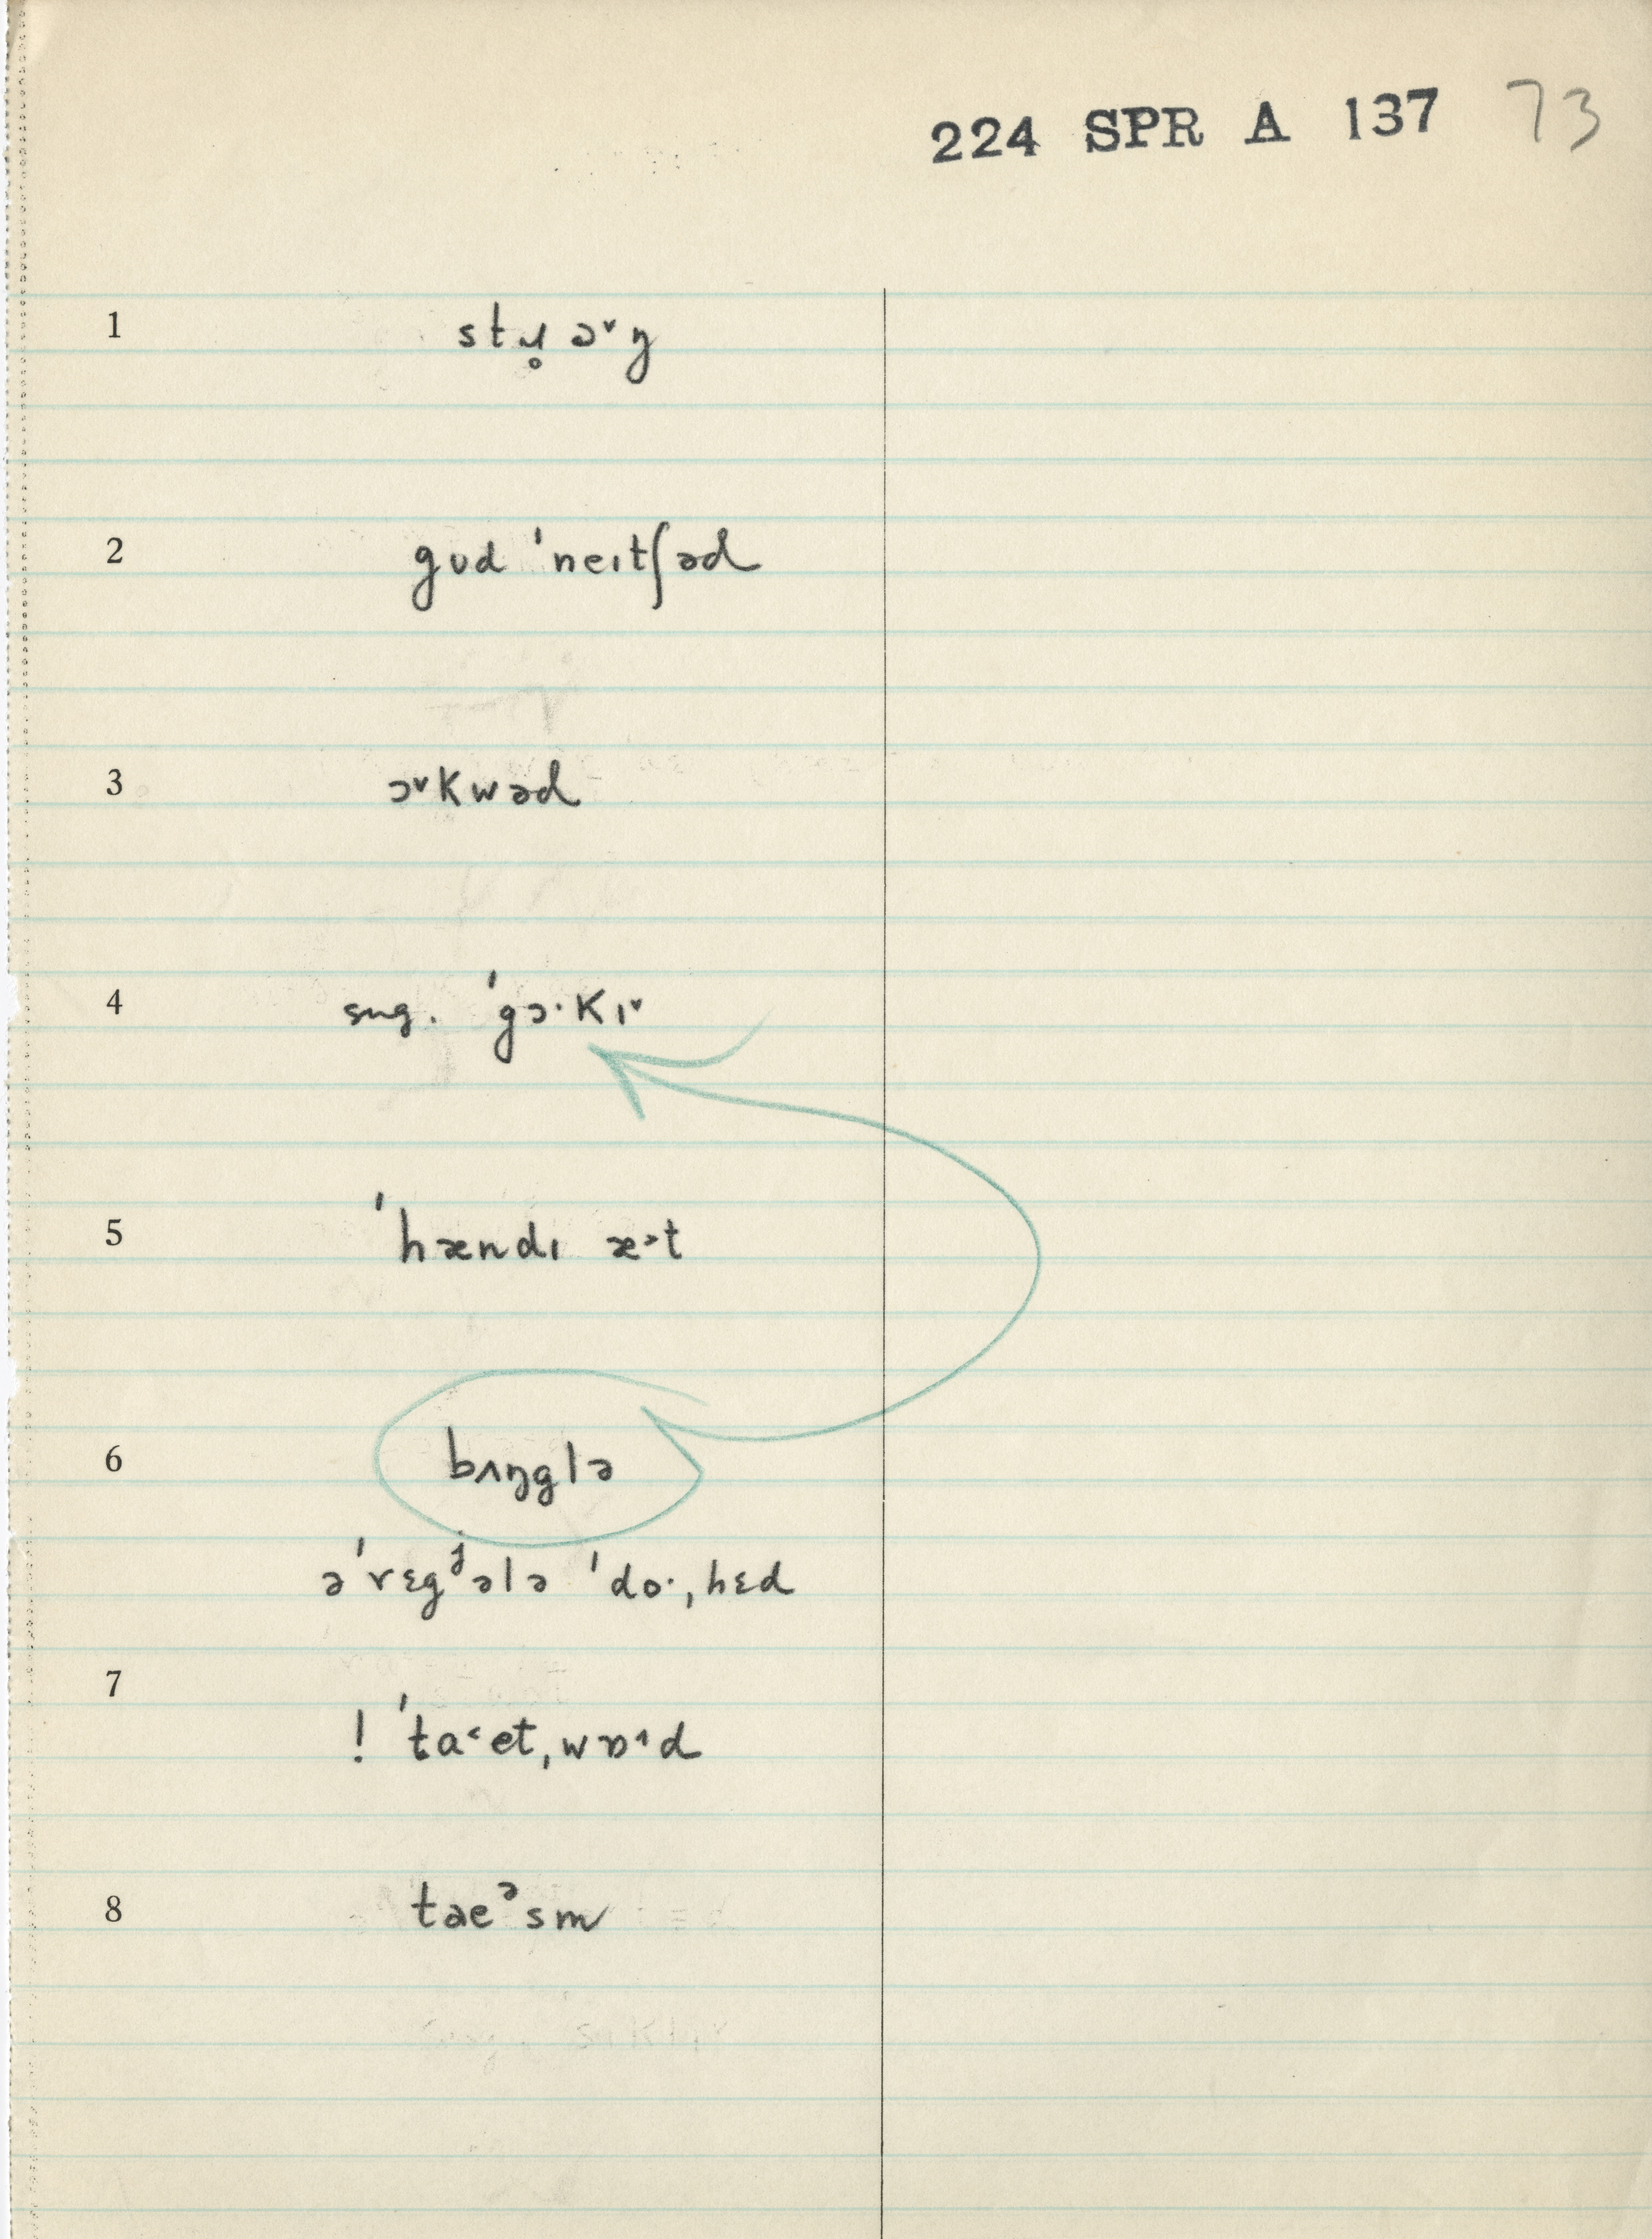 224 SPR A 137 73
1 stɹ̥ɔ˅ŋ
2 gʊd ˈneɪtʃəd
3 ɔ˅kwəd
4 sug. ˈgɔ·kɪ˅
5 ˈhændɪ æ˃t
6 bʌŋglə
əˈrɛgʲələ ˈdo·ˌhɛd
7
! ˈta˂etˌwɒ˄d
8 taeᵊsm